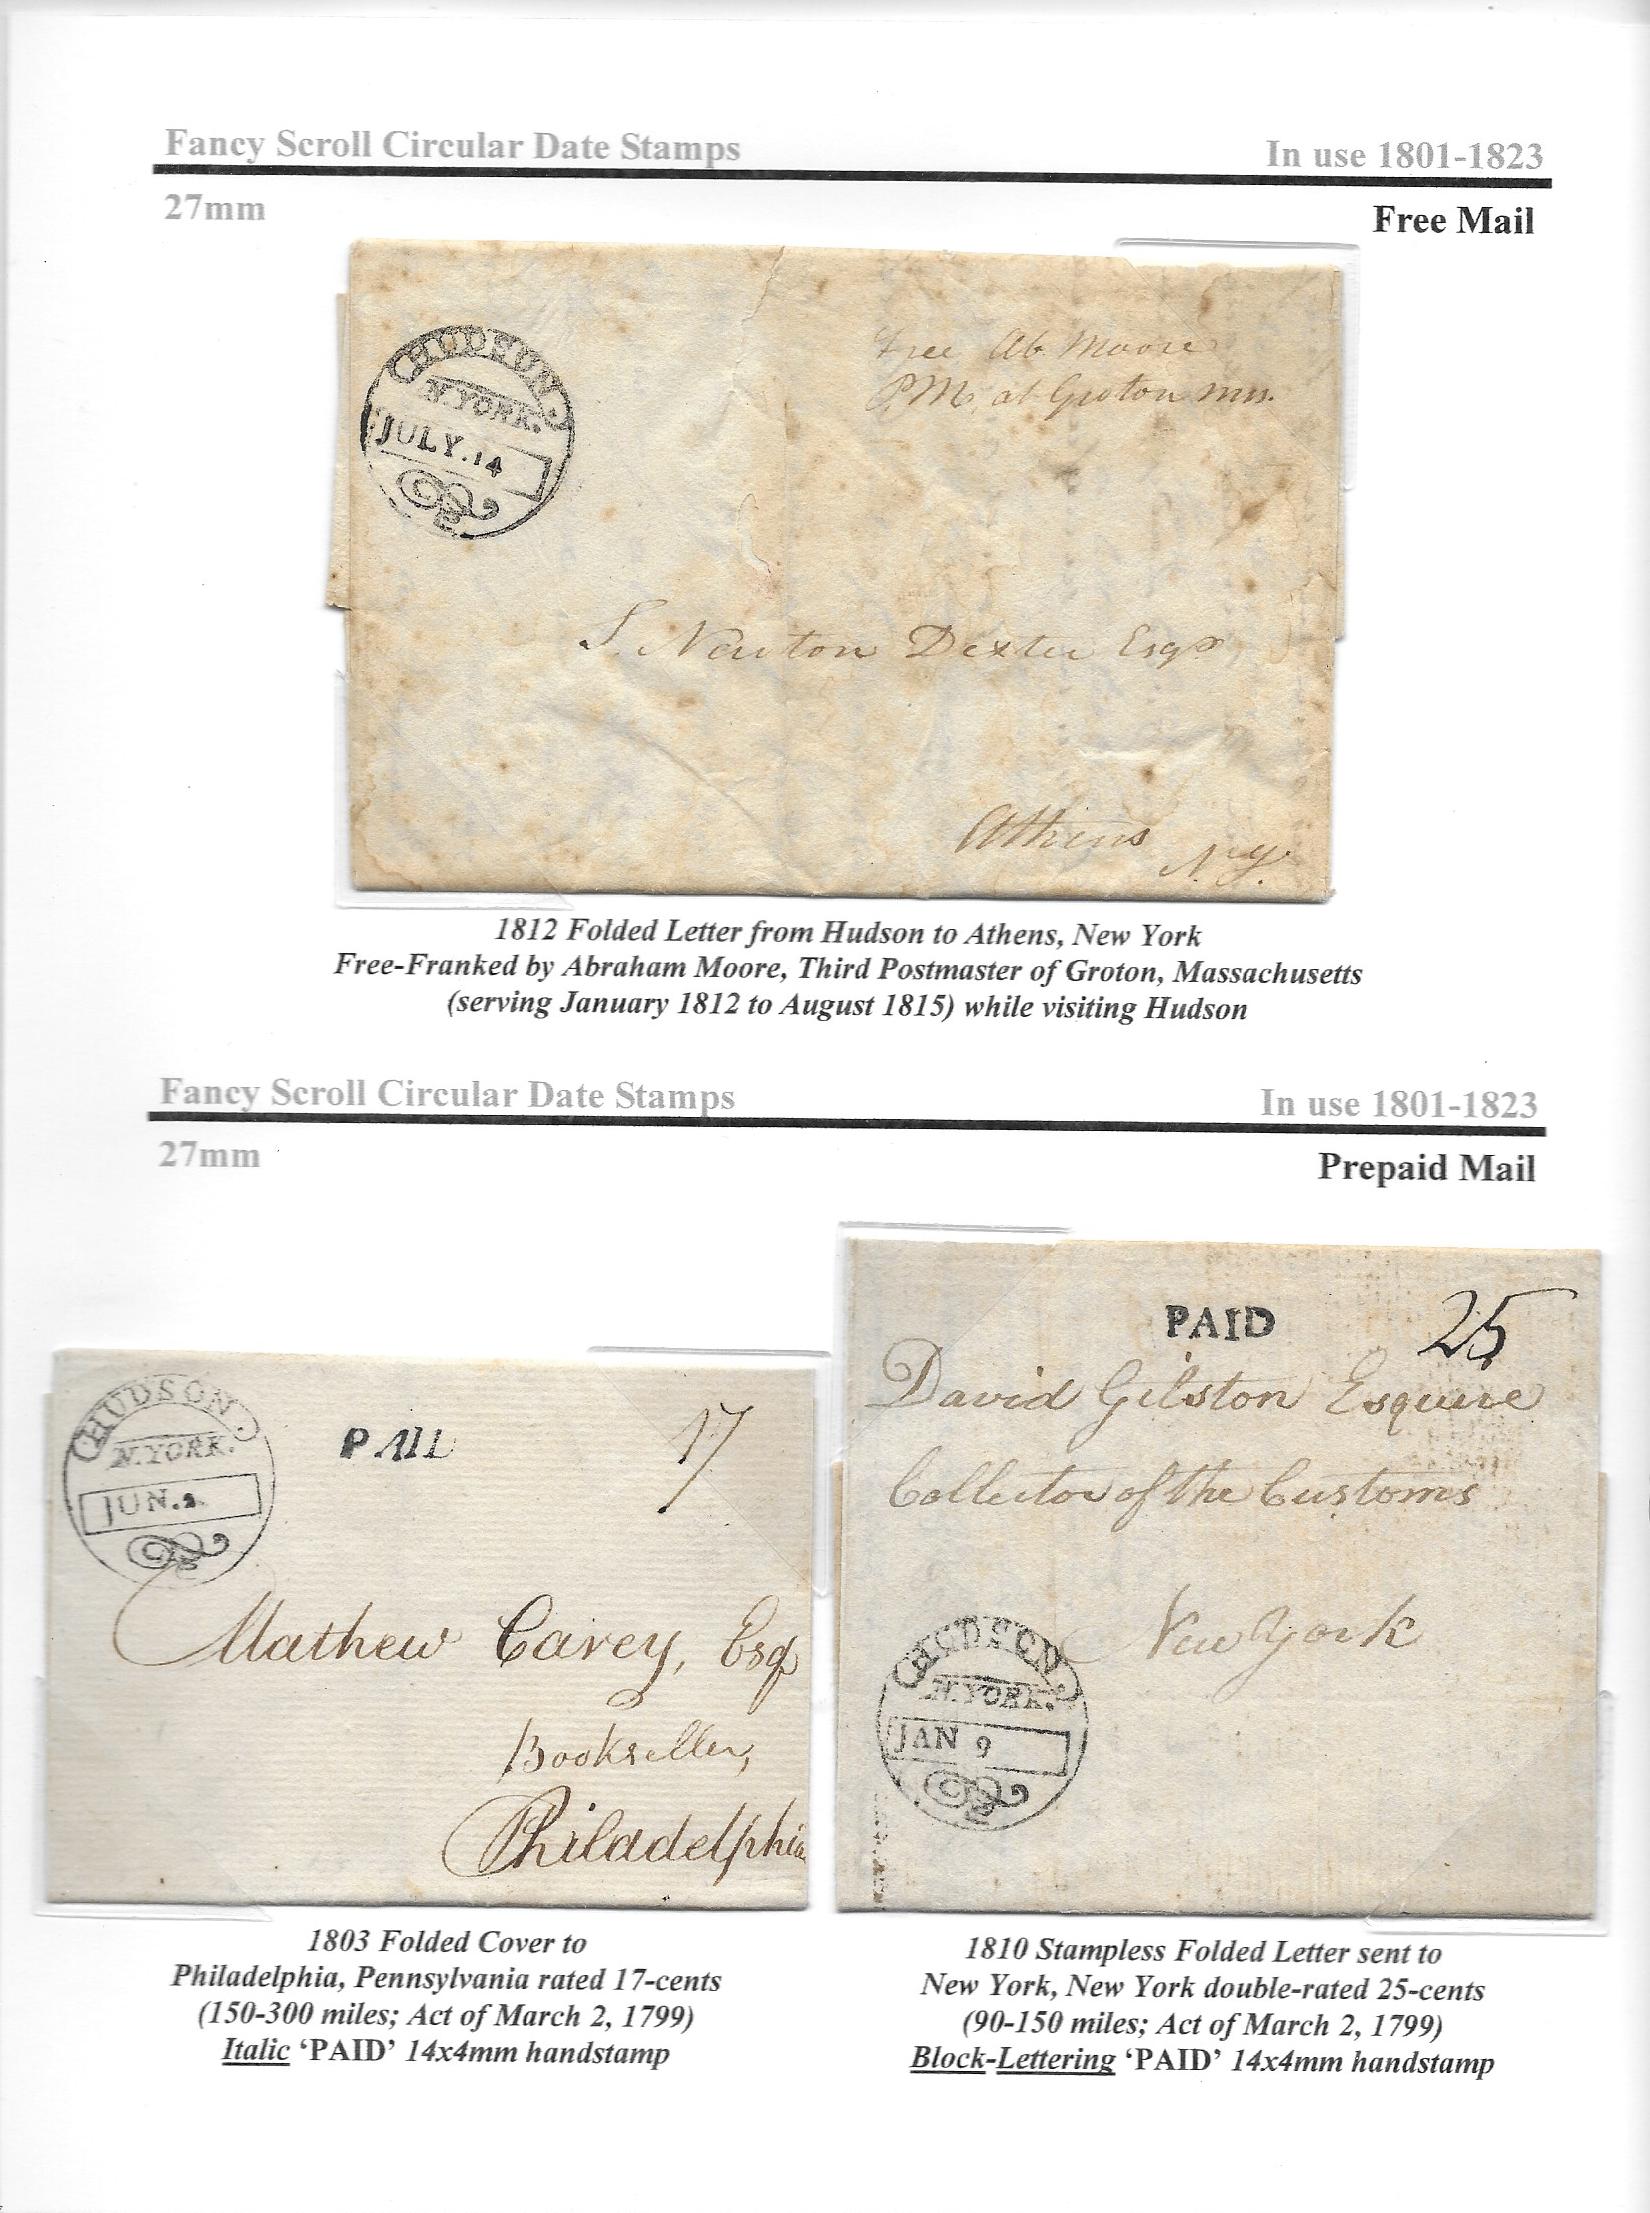 Fancy Scroll Circular Date Stamps
In use 1801-1823
27mm
Free Mail
HUDSON.
N.YORK.
JULY.14
Free Ab Moore
P.M. at Groton Mss.
S. Newton Dexter Esqr
Athens
N.Y.
1812 Folded Letter from Hudson to Athens, New York
Free-Franked by Abraham Moore, Third Postmaster of Groton, Massachusetts
(serving January 1812 to August 1815) while visiting Hudson
Fancy Scroll Circular Date Stamps
In use 1801-1823
27mm
Prepaid Mail
HUDSON.
N.YORK.
JUN.2.
PAID
17
Mathew Carey, Esq
Bookseller,
Philadelphia
1803 Folded Cover to
Philadelphia, Pennsylvania rated 17-cents
(150-300 miles; Act of March 2, 1799)
Italic ‘PAID’ 14x4mm handstamp
PAID
25
David Gelston Esquire
Collector of the Customs
New York
HUDSON.
N.YORK.
JAN 9
1810 Stampless Folded Letter sent to
New York, New York double-rated 25-cents
(90-150 miles; Act of March 2, 1799)
Block-Lettering ‘PAID’ 14x4mm handstamp